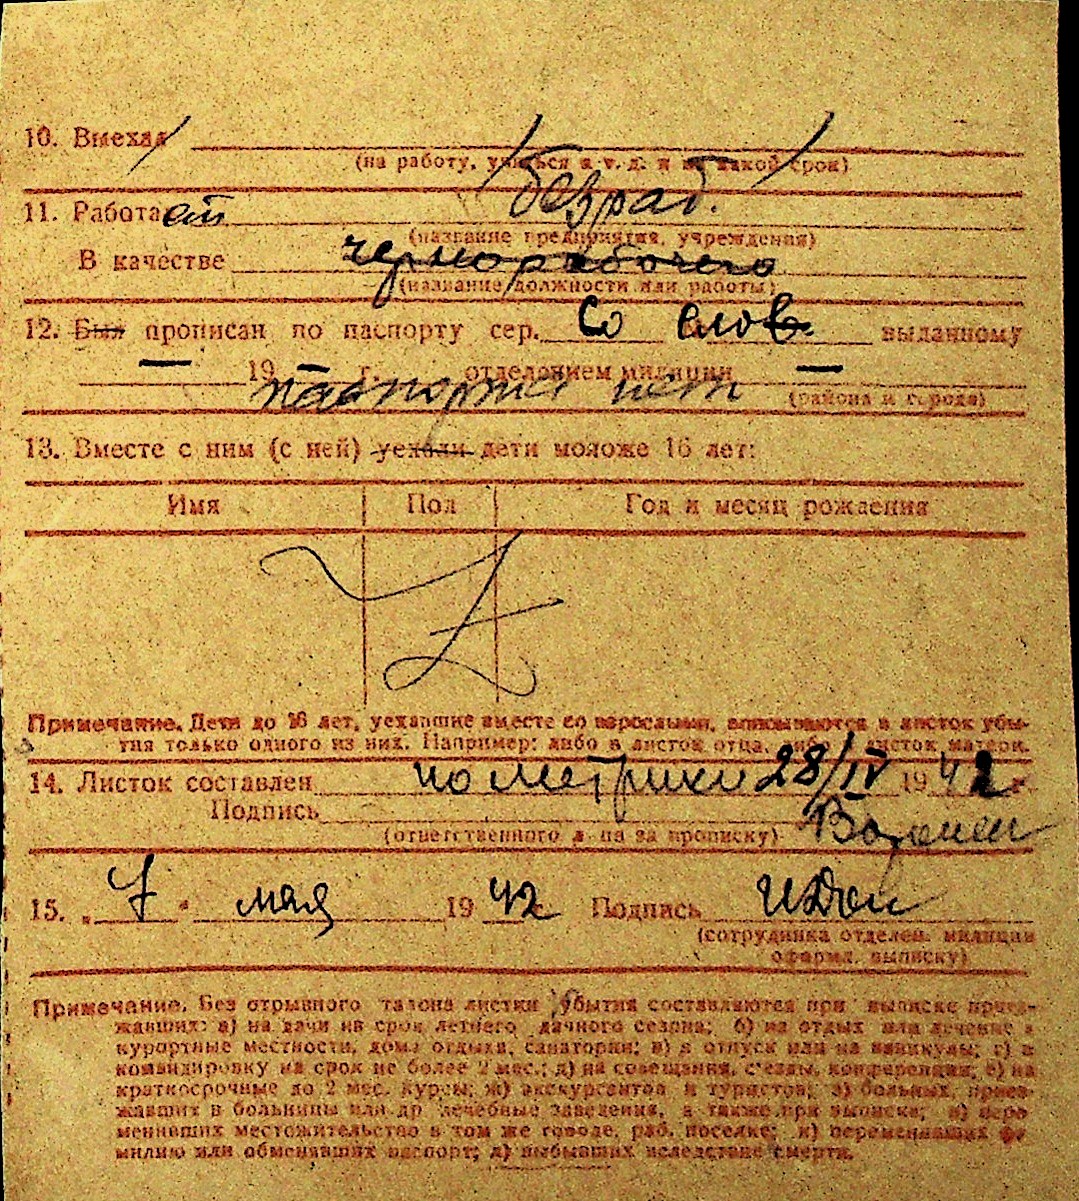 10. Выехал
(на работу, учиться и т. д. и на какой срок)
11. Работает безраб.
(название предприятия, учреждения)
В качестве чернорабочего
(название должности или работы)
12. Был прописан по паспорту сер. Со слов. выданному
— 19 — г. отделением милиции —
паспорта нет (района и города)
13. Вместе с ним (с ней) уехали дети моложе 16 лет:
Имя Пол Год и месяц рождения
Z
Примечание. Дети до 16 лет, уехавшие вместе со взрослыми, вписываются в листок убы-
тия только одного из них. Например: либо в листок отца, либо в листок матери.
14. Листок составлен по метрики 28/IV 1942 г.
Подпись
(ответственного л-ца за прописку)
15. „ 7 " мая 1942 г. Подпись
(сотрудника отделен. милиции
оформл. выписку)
Примечание. Без отрывного талона листки убытия составляются при выписке приез-
жавших: а) на дачи на срок летнего дачного сезона; б) на отдых или лечение в
курортные местности, дома отдыха, санатории; в) в отпуск или на каникулы; г) в
командировку на срок не более 2 мес.; д) на совещания, с'езды, конференции; е) на
краткосрочные до 2 мес. курсы; ж) экскурсантов и туристов; з) больных, приез-
жавших в больницы или др лечебные заведения, а также при выписке; и) пере
менивших местожительство в том же городе, раб. поселке; к) переменивших фа
милию или обменявших паспорт; л) выбывших вследствие смерти.